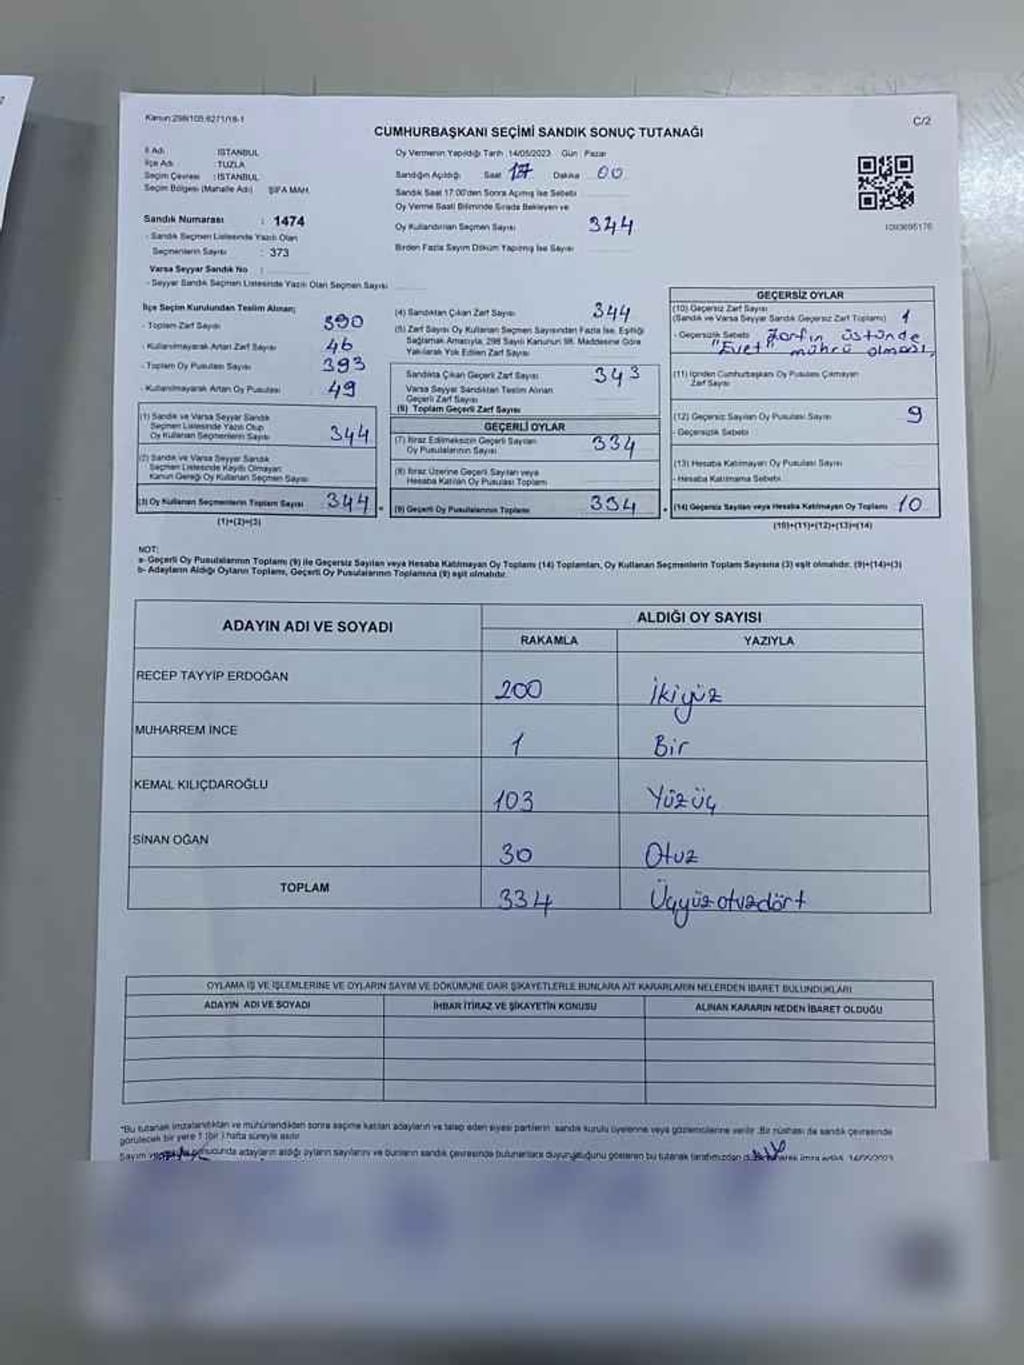 Kanun:298/105,6271/18-1
C/2
CUMHURBAŞKANI SEÇİMİ SANDIK SONUÇ TUTANAĞI
İl Adı : İSTANBUL
İlçe Adı : TUZLA
Seçim Çevresi : İSTANBUL
Seçim Bölgesi (Mahalle Adı) ŞİFA MAH.
Sandık Numarası : 1474
- Sandık Seçmen Listesinde Yazılı Olan
Seçmenlerin Sayısı : 373
Varsa Seyyar Sandık No :
- Seyyar Sandık Seçmen Listesinde Yazılı Olan Seçmen Sayısı
Oy Vermenin Yapıldığı Tarih :14/05/2023 Gün : Pazar
Sandığın Açıldığı Saat 17 Dakika 00
Sandık Saat 17:00'den Sonra Açılmış İse Sebebi
Oy Verme Saati Bitiminde Sırada Bekleyen ve
Oy Kullandırılan Seçmen Sayısı 344
Birden Fazla Sayım Döküm Yapılmış İse Sayısı
İlçe Seçim Kurulundan Teslim Alınan;
- Toplam Zarf Sayısı 390
- Kullanılmayarak Artan Zarf Sayısı 46
- Toplam Oy Pusulası Sayısı 393
- Kullanılmayarak Artan Oy Pusulası 49
(1) Sandık ve Varsa Seyyar Sandık
Seçmen Listesinde Yazılı Olup
Oy Kullanan Seçmenlerin Sayısı 344
(2) Sandık ve Varsa Seyyar Sandık
Seçmen Listesinde Kayıtlı Olmayan
Kanun Gereği Oy Kullanan Seçmen Sayısı
(3) Oy Kullanan Seçmenlerin Toplam Sayısı 344
(1)+(2)=(3)
(4) Sandıktan Çıkan Zarf Sayısı 344
(5) Zarf Sayısı Oy Kullanan Seçmen Sayısından Fazla İse, Eşitliği
Sağlamak Amacıyla, 298 Sayılı Kanunun 98. Maddesine Göre
Yakılarak Yok Edilen Zarf Sayısı
Sandıkta Çıkan Geçerli Zarf Sayısı 343
Varsa Seyyar Sandıktan Teslim Alınan
Geçerli Zarf Sayısı
(6) Toplam Geçerli Zarf Sayısı
GEÇERLİ OYLAR
(7) İtiraz Edilmeksizin Geçerli Sayılan
Oy Pusulalarının Sayısı 334
(8) İtiraz Üzerine Geçerli Sayılan veya
Hesaba Katılan Oy Pusulası Toplamı
(9) Geçerli Oy Pusulalarının Toplamı 334
GEÇERSİZ OYLAR
(10) Geçersiz Zarf Sayısı
(Sandık ve Varsa Seyyar Sandık Geçersiz Zarf Toplamı) 1
- Geçersizlik Sebebi Zarfın üstünde
"Evet" mührü olması.
(11) İçinden Cumhurbaşkanı Oy Pusulası Çıkmayan
Zarf Sayısı
(12) Geçersiz Sayılan Oy Pusulası Sayısı 9
- Geçersizlik Sebebi
(13) Hesaba Katılmayan Oy Pusulası Sayısı
- Hesaba Katılmama Sebebi
(14) Geçersiz Sayılan veya Hesaba Katılmayan Oy Toplamı 10
(10)+(11)+(12)+(13)=(14)
NOT:
a- Geçerli Oy Pusulalarının Toplamı (9) ile Geçersiz Sayılan veya Hesaba Katılmayan Oy Toplamı (14) Toplamları, Oy Kullanan Seçmenlerin Toplam Sayısına (3) eşit olmalıdır. (9)+(14)=(3)
b- Adayların Aldığı Oyların Toplamı, Geçerli Oy Pusulalarının Toplamına (9) eşit olmalıdır.
ADAYIN ADI VE SOYADI
ALDIĞI OY SAYISI
RAKAMLA YAZIYLA
RECEP TAYYİP ERDOĞAN 200 İkiyüz
MUHARREM İNCE 1 Bir
KEMAL KILIÇDAROĞLU 103 Yüzüç
SİNAN OĞAN 30 Otuz
TOPLAM 334 Üçyüzotuzdört
OYLAMA İŞ VE İŞLEMLERİNE VE OYLARIN SAYIM VE DÖKÜMÜNE DAİR ŞİKAYETLERLE BUNLARA AİT KARARLARIN NELERDEN İBARET BULUNDUKLARI
ADAYIN ADI VE SOYADI İHBAR İTİRAZ VE ŞİKAYETİN KONUSU ALINAN KARARIN NEDEN İBARET OLDUĞU
*Bu tutanak imzalandıktan ve mühürlendikten sonra seçime katılan adayların ve talep eden siyasi partilerin sandık kurulu üyelerine veya gözlemcilerine verilir. Bir nüshası da sandık çevresinde
görülecek bir yere 1 (bir) hafta süreyle asılır.
Sayım ve sonucunda adayların aldığı oyların sayılarını ve bunların sandık çevresinde bulunanlara duyurulduğunu gösteren bu tutanak tarafımızdan imza edildi. 14/05/2023